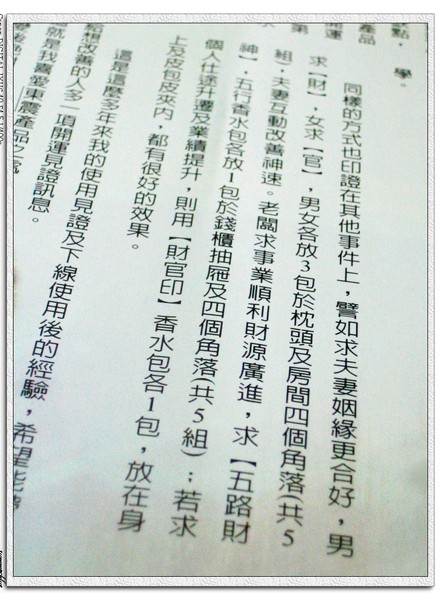 點，
學。
產品
開運
第
同樣的方式也印證在其他事件上，譬如求夫妻姻緣更合好，男
求【財】，女求【官】，男女各放3包於枕頭及房間四個角落(共5
組)，夫妻互動改善神速。老闆求事業順利財源廣進，求【五路財
神】，五行香水包各放1包於錢櫃抽屜及四個角落(共5組)；若求
個人仕途升遷及業績提升，則用【財官印】香水包各1包，放在身
上及皮包皮夾內，都有很好的效果。
這是這麼多年來我的使用見證及下線使用後的經驗，希望能
給想改善的人多一項開運見證訊息。
就是我舊愛東震產品之